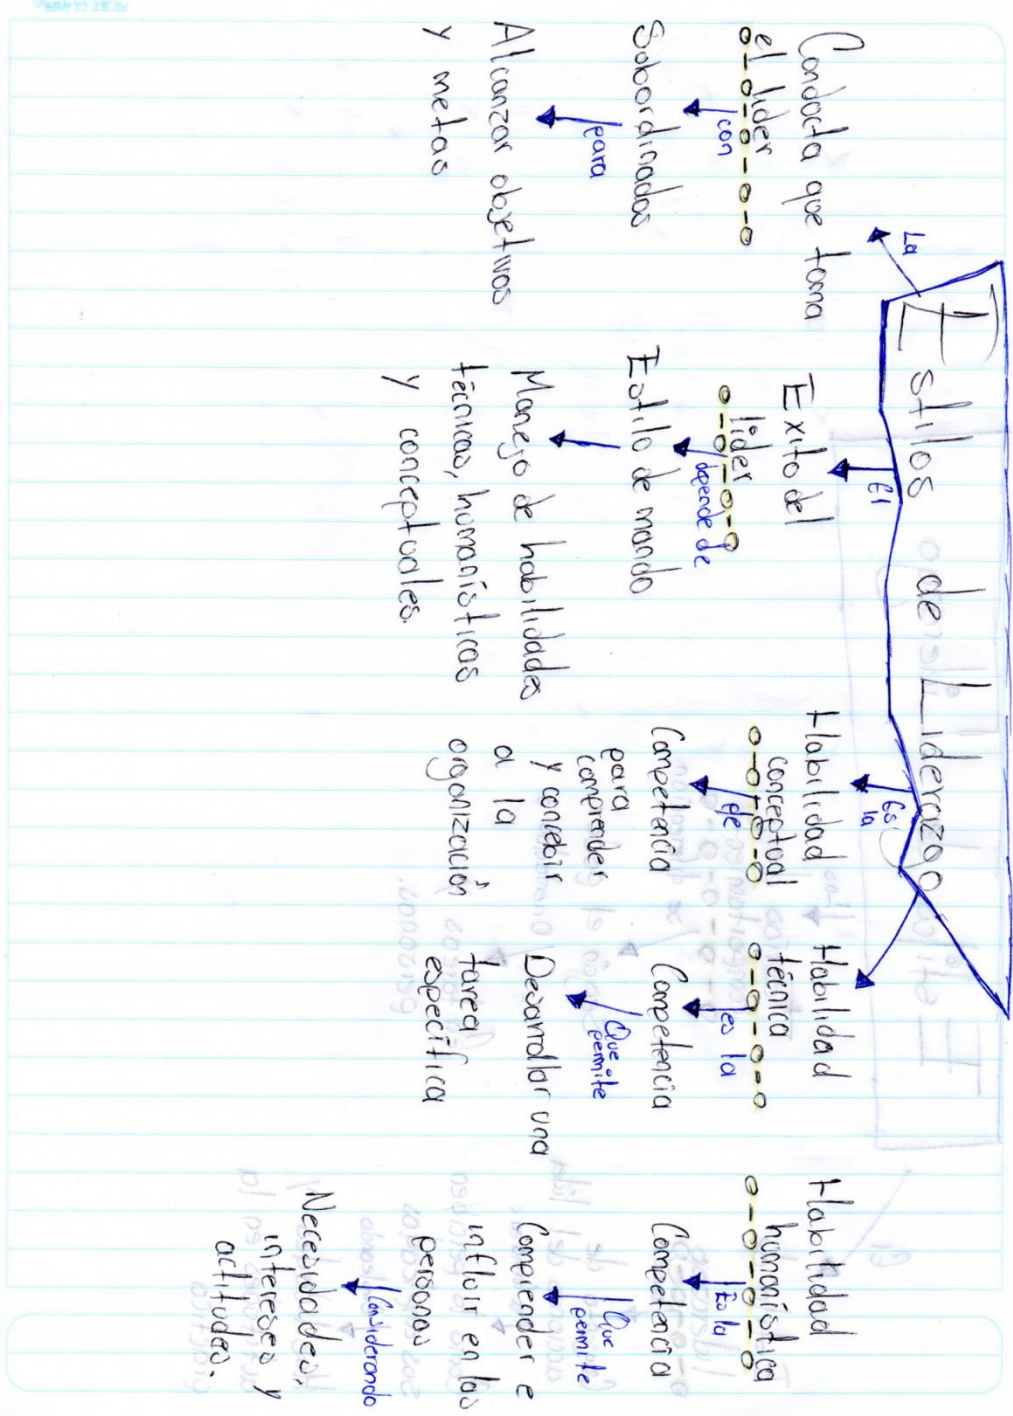 Estilos de Liderazgo
La
Conducta que toma
el líder
con
Subordinados
para
Alcanzar objetivos
y metas
El
Exito del
líder
depende de
Estilo de mando
Manejo de habilidades
técnicas, humanísticas
y conceptuales.
Es
la
Habilidad
conceptual
de
Competencia
para
comprender
y concebir
a la
organización
Habilidad
técnica
es la
Competencia
Que
permite
Desarrollar una
tarea
específica
Habilidad
humanística
Es la
Competencia
Que
permite
Comprender e
influir en las
personas
Considerando
Necesidades,
intereses y
actitudes.